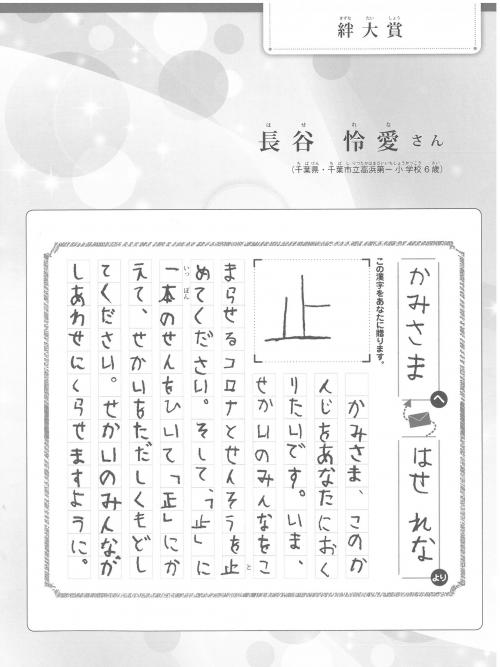 きずな たい しょう
絆大賞
は せ れ な
長谷 怜愛さん
ちばけん ちばしりつたかはまだいいちしょうがっこう さい
(千葉県・千葉市立高浜第一小学校6歳)
かみさま へ
はせ れな より
この漢字をあなたに贈ります。
止
かみさま、このか
んじをあなたにおく
りたいです。いま、
せかいのみんなをこ
まらせるコロナとせんそうを止
と
めてください。そして、「止」に
一本のせんをひいて「正」にか
いっぽん
えて、せかいをただしくもどし
てください。せかいのみんなが
しあわせにくらせますように。